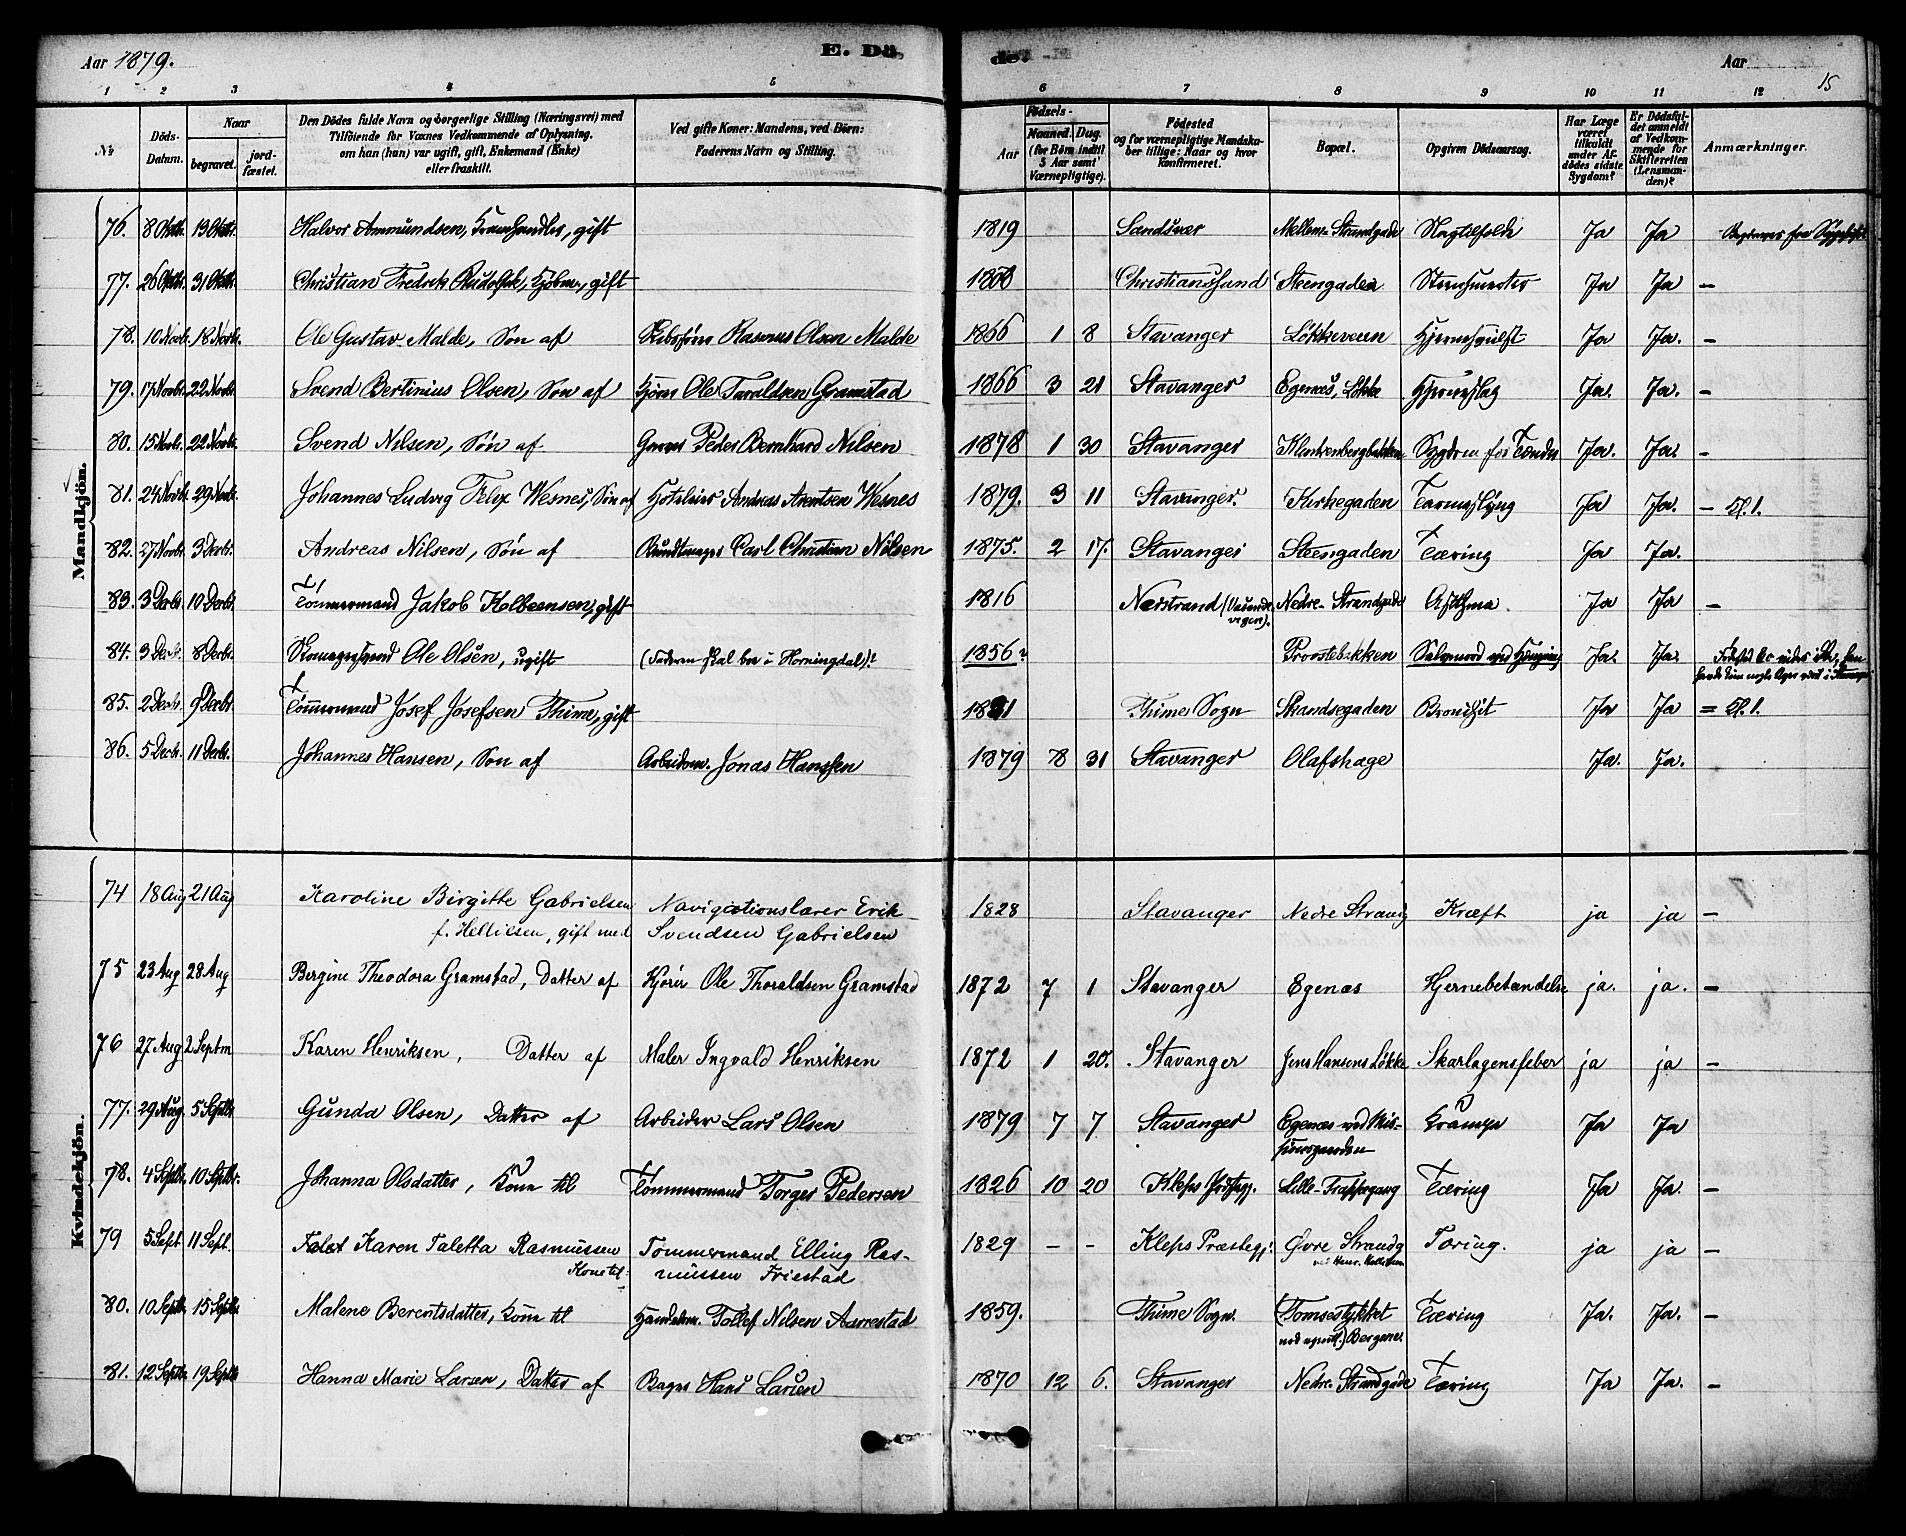 Aar 1879. E. Dö de. Aar 15
1 2 3 4 5 6 7 8 9 10 11 12
No Döds-Datum. Naar begravet. jord-fæstet. Den Dödes fulde Navn og borgerlige Stilling (Næringsvei) med Tilföiende for Voxnes Vedkommende af Oplysning, om han (hun) var ugift, gift, Enkemand (Enke) eller fraskilt. Ved gifte Koner: Mandens, ved Börn: Faderens Navn og Stilling. Födsels- Aar Maaned. Dag. (for Börn indtil 5 Aar samt Værnepligtige). Födested og for værnepligtige Mandskaber tillige: Naar og hvor konfirmeret. Bopæl. Opgiven Dödsaarsag. Har Læge været tilkaldt under Afdödes sidste Sygdom? Er Dödsfaldet anmeldt af Vedkommende for Skifteretten (Lensmanden)? Anmærkninger.
Mandkjön.
76. 8 Oktb. 13 Oktb. Halvor Ammundsen, Kramhandler, gift 1819 Sandsvær Mellem Strandgade Ja Ja
77. 26 Oktb. 31 Oktb. Christian Fredrik Rudolph, gift Christianssund Steengaden Ja Ja —
78. 10 Novbr. 18 Novbr. Ole Gustav Malde, Søn af Skibsfører Rasmus Olsen Malde 1866 1 8 Stavanger Løkkeveien Ja Ja. —
79. 17 Novbr. 22 Novbr. Svend Bertinius Olsen, Søn af Kjører Ole Taraldsen Gramstad 1866 3 21 Stavanger Egenæs, Løkke Ja. Ja. —
80. 15 Novbr. 22 Novbr. Svend Nilsen, Søn af Peder Bernhard Nilsen 1878 1 30 Stavanger Klinkenbergbakken Sygdom for Tænder Ja. Ja. —
81. 24 Novbr. 29 Novbr. Johannes Ludvig Felix Wesnes, Søn af Andreas Arentsen Wesnes 1879. 3 11 Stavanger. Kirkegaden Ja Ja. — Bl. 1.
82. 27 Novbr. 3 Decbr. Andreas Nilsen, Søn af Bundtmager Carl Christian Nilsen 1875. 2 17. Stavanger Steengaden Tæring Ja Ja.
83. 3 Decbr. 10 Decbr. Tömmermand Jakob Kolbeensen, gift 1816 Nerstrand Nedre Strandgade Asthma. Ja Ja —
84. 3 Decbr. 8 Decbr. Skomagersvend Ole Olsen, ugift (Faderen skal bo i Horningdal)? 1856? Provstebakken Selvmord ved Hængning Ja. Ja.
85. 2 Decbr. 9 Decbr. Tömmermand Josef Josefsen Thime, gift Thime Sogn Skandsegaden Ja Ja = Bl. 1.
86. 5 Decbr. 11 Decbr. Johannes Hansen, Søn af Arbeidsm. Jonas Hansen 1879 8 31 Stavanger Olafshage Ja. Ja.
Kvindekjön.
74 18 Aug 21 Aug Karoline Birgitte Gabrielsen Navigationslærer Erik 1828 Stavanger Nedre Strandg Kræft ja ja —
f. Helliesen, gift med Svendsen Gabrielsen
75 23 Aug 28 Aug Bergine Theodora Gramstad, Datter af Kjører Ole Thoraldsen Gramstad 1872 7 1 Stavanger Egenæs Hjernebetændelse ja. ja. —
76 27 Aug 2 Septm Karen Henriksen, Datter af Maler Ingvald Henriksen 1872 1 20. Stavanger Jens Hansens Løkke Skarlagensfeber ja ja —
77. 29 Aug. 5 Septbr. Gunda Olsen, Datter af Arbeider Lars Olsen 1879 7 7 Stavanger Egenæs ved Mis- Krampe Ja Ja
78. 4 Septbr. 10 Septbr. Johanna Olsdatter, Kone til Tömmermand Torger Pedersen 1826 10 20 Kleps Prstgj. Lille Trappegang Tæring Ja Ja. —
79 5 Sept 11 Sept. Karen Taletta Rasmussen Tømmermand Elling Ras- 1829 - - Kleps Præstegj. Øvre Strandg Tæring. ja ja —
Kone til mussen Friestad
80. 10 Septbr. 15 Septbr. Malene Berentsdatter, Kone til Tollef Nilsen Aarrestad 1859. Thime Sogn. Tæring Ja. Ja. —
81. 12 Septbr. 19 Septbr. Hanna Marie Larsen, Datter af Bager Hans Larsen 1870 12 6. Stavanger Nedre Strandgade Tæring Ja Ja. —